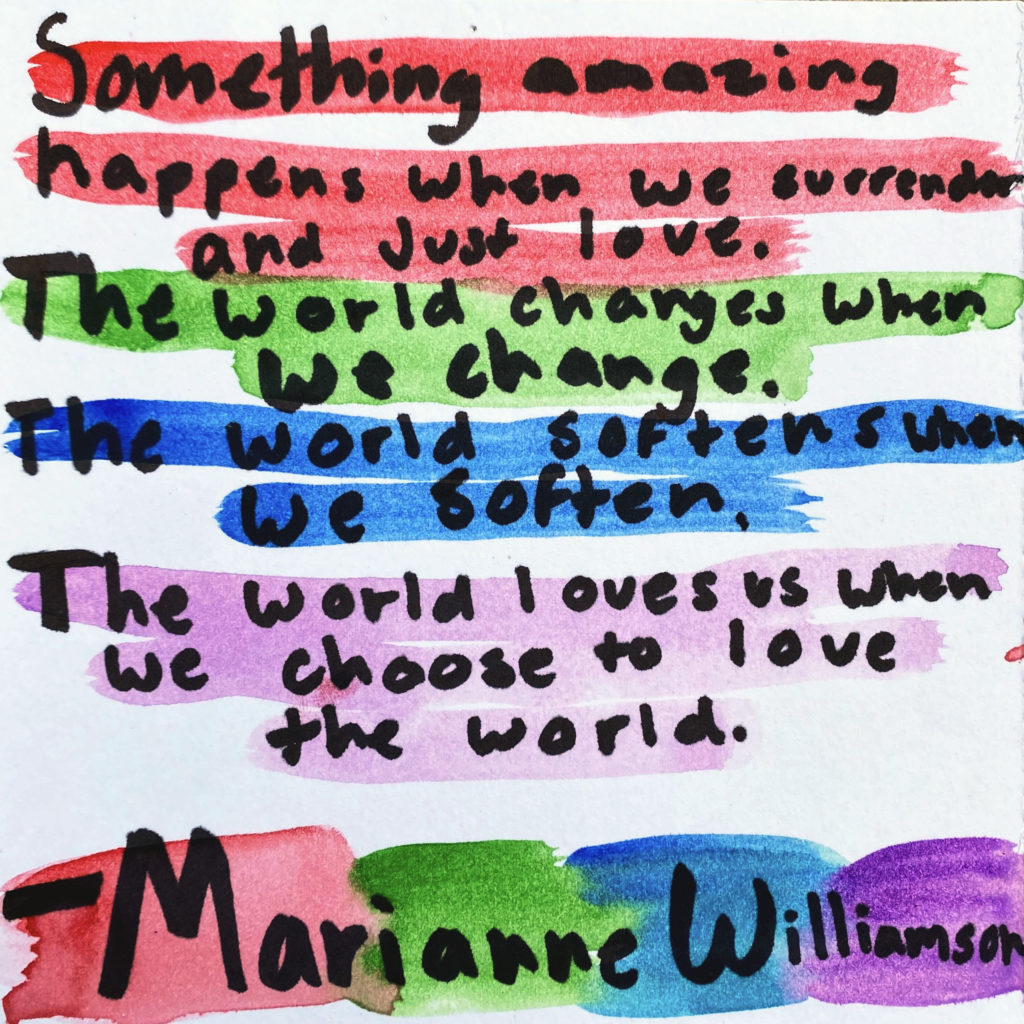 Something amazing
happens when we surrender
and just love.
The world changes when
we change.
The world softens when
we soften.
The world loves us when
we choose to love
the world.
-Marianne Williamson